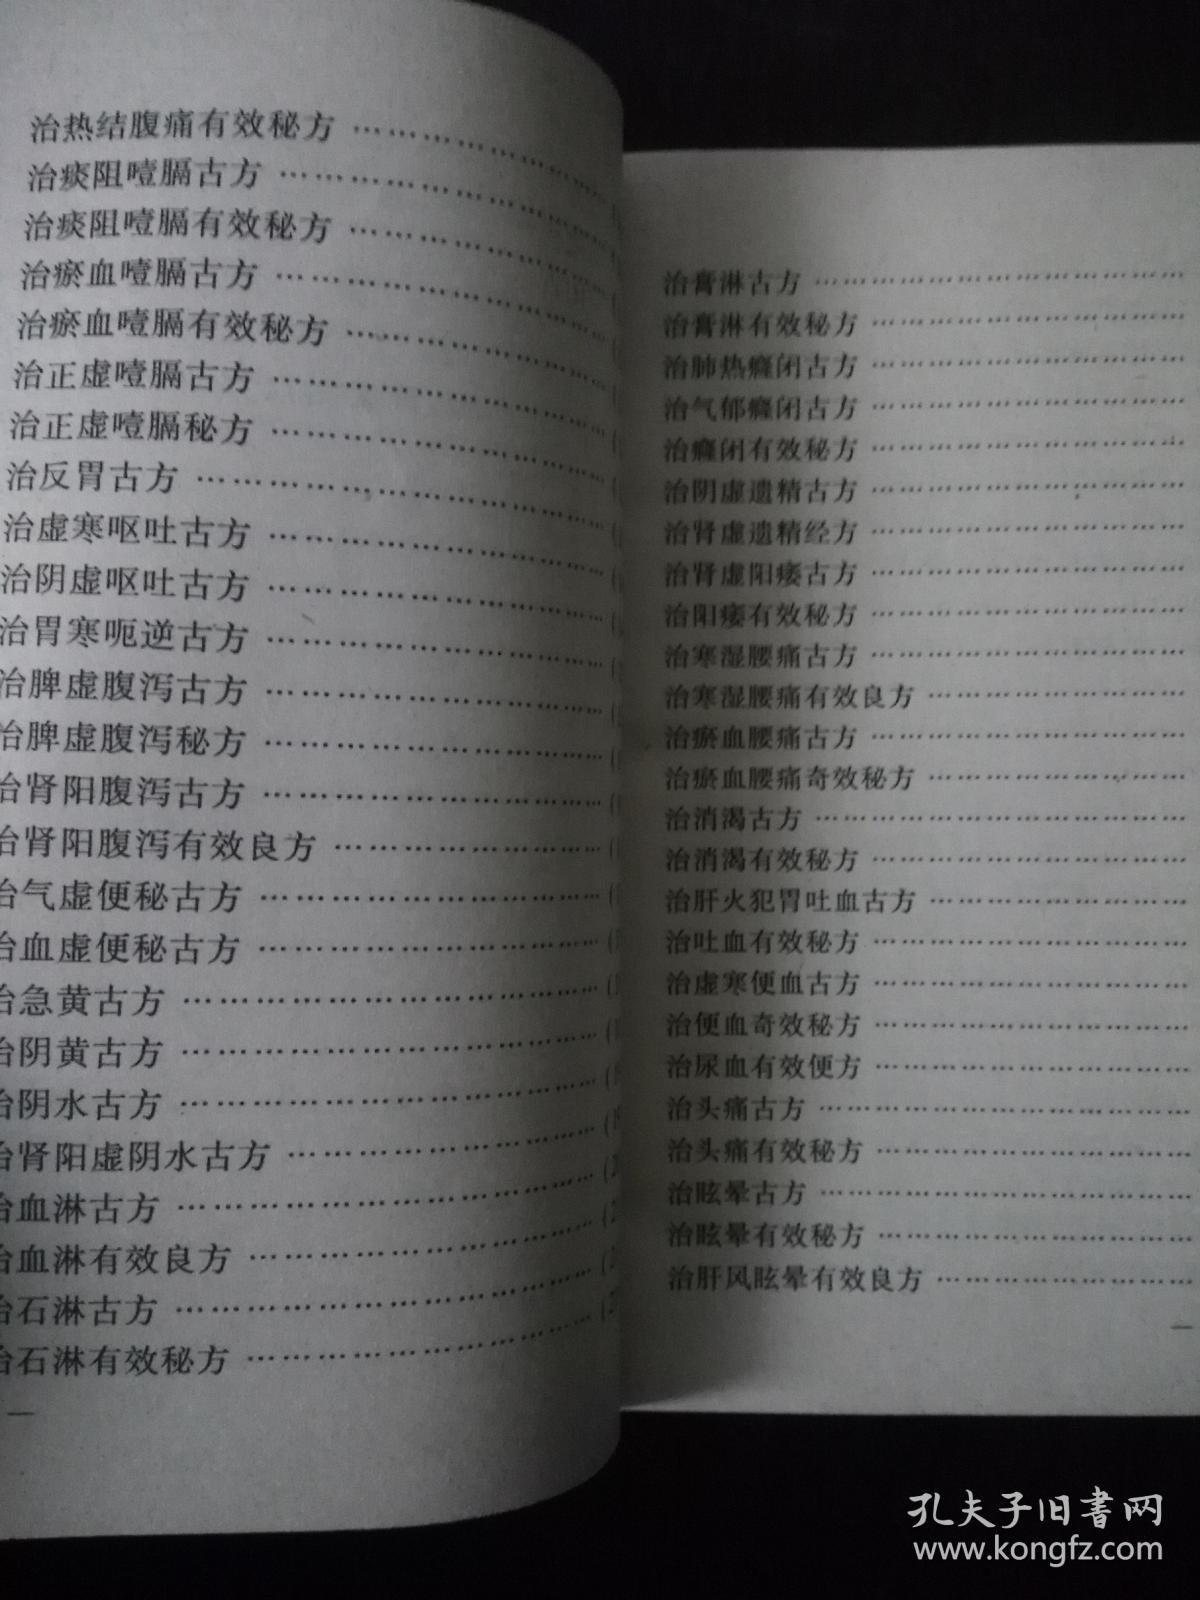 治热结腹痛有效秘方 ……………………
治痰阻噎膈古方 ……………………
治痰阻噎膈有效秘方 ……………………
治瘀血噎膈古方 ……………………
治瘀血噎膈有效秘方 ……………………
治正虚噎膈古方 ……………………
治正虚噎膈秘方 ……………………
治反胃古方 ……………………
治虚寒呕吐古方 ……………………
治阴虚呕吐古方 ……………………
治胃寒呃逆古方 ……………………
治脾虚腹泻古方 ……………………
治脾虚腹泻秘方 ……………………
治肾阳腹泻古方 ……………………
治肾阳腹泻有效良方 ……………………
治气虚便秘古方 ……………………
治血虚便秘古方 ……………………
治急黄古方 ……………………
治阴黄古方 ……………………
治阴水古方 ……………………
治肾阳虚阴水古方 ……………………
治血淋古方 ……………………
治血淋有效良方 ……………………
治石淋古方 ……………………
治石淋有效秘方 ……………………
治膏淋古方 ……………………
治膏淋有效秘方 ……………………
治肺热癃闭古方 ……………………
治气郁癃闭古方 ……………………
治癃闭有效秘方 ……………………
治阴虚遗精古方 ……………………
治肾虚遗精经方 ……………………
治肾虚阳痿古方 ……………………
治阳痿有效秘方 ……………………
治寒湿腰痛古方 ……………………
治寒湿腰痛有效良方 ……………………
治瘀血腰痛古方 ……………………
治瘀血腰痛奇效秘方 ……………………
治消渴古方 ……………………
治消渴有效秘方 ……………………
治肝火犯胃吐血古方 ……………………
治吐血有效秘方 ……………………
治虚寒便血古方 ……………………
治便血奇效秘方 ……………………
治尿血有效便方 ……………………
治头痛古方 ……………………
治头痛有效秘方 ……………………
治眩晕古方 ……………………
治眩晕有效秘方 ……………………
治肝风眩晕有效良方 ……………………
孔夫子旧书网
www.kongfz.com